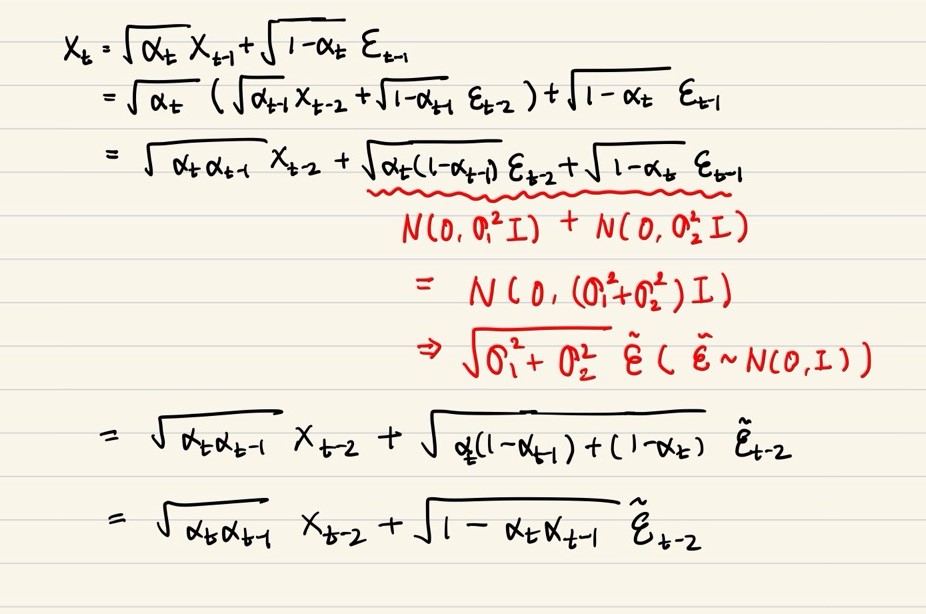 x_t = √α_t x_{t-1} + √1-α_t ε_{t-1}
= √α_t (√α_{t-1} x_{t-2} + √1-α_{t-1} ε_{t-2}) + √1-α_t ε_{t-1}
= √α_t α_{t-1} x_{t-2} + √α_t(1-α_{t-1}) ε_{t-2} + √1-α_t ε_{t-1}
N(0, σ₁² I) + N(0, σ₂² I)
= N(0, (σ₁²+σ₂²) I)
⇒ √σ₁² + σ₂² ε̃ ( ε̃ ~ N(0, I) )
= √α_t α_{t-1} x_{t-2} + √α_t(1-α_{t-1}) + (1-α_t) ε̃_{t-2}
= √α_t α_{t-1} x_{t-2} + √1 - α_t α_{t-1} ε̃_{t-2}